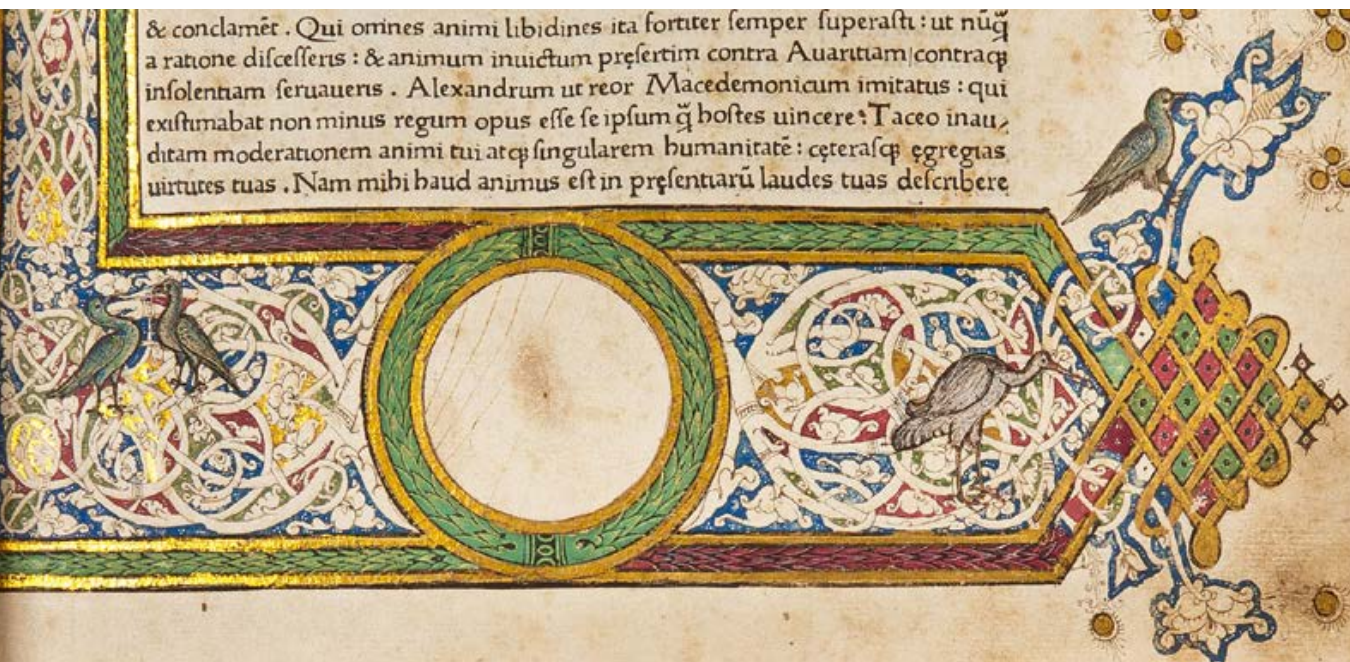 & conclamēt . Qui omnes animi libidines ita fortiter semper superasti : ut nūq̄
a ratione discesseris : & animum inuictum pręsertim contra Auaritiam contraqꝫ
insolentiam seruaueris . Alexandrum ut reor Macedemonicum imitatus : qui
existimabat non minus regum opus esse se ipsum q̄ hostes uincere : Taceo inau-
ditam moderationem animi tui atqꝫ singularem humanitatē : cęterasqꝫ ęgregias
uirtutes tuas . Nam mihi haud animus est in pręsentiarū laudes tuas describere